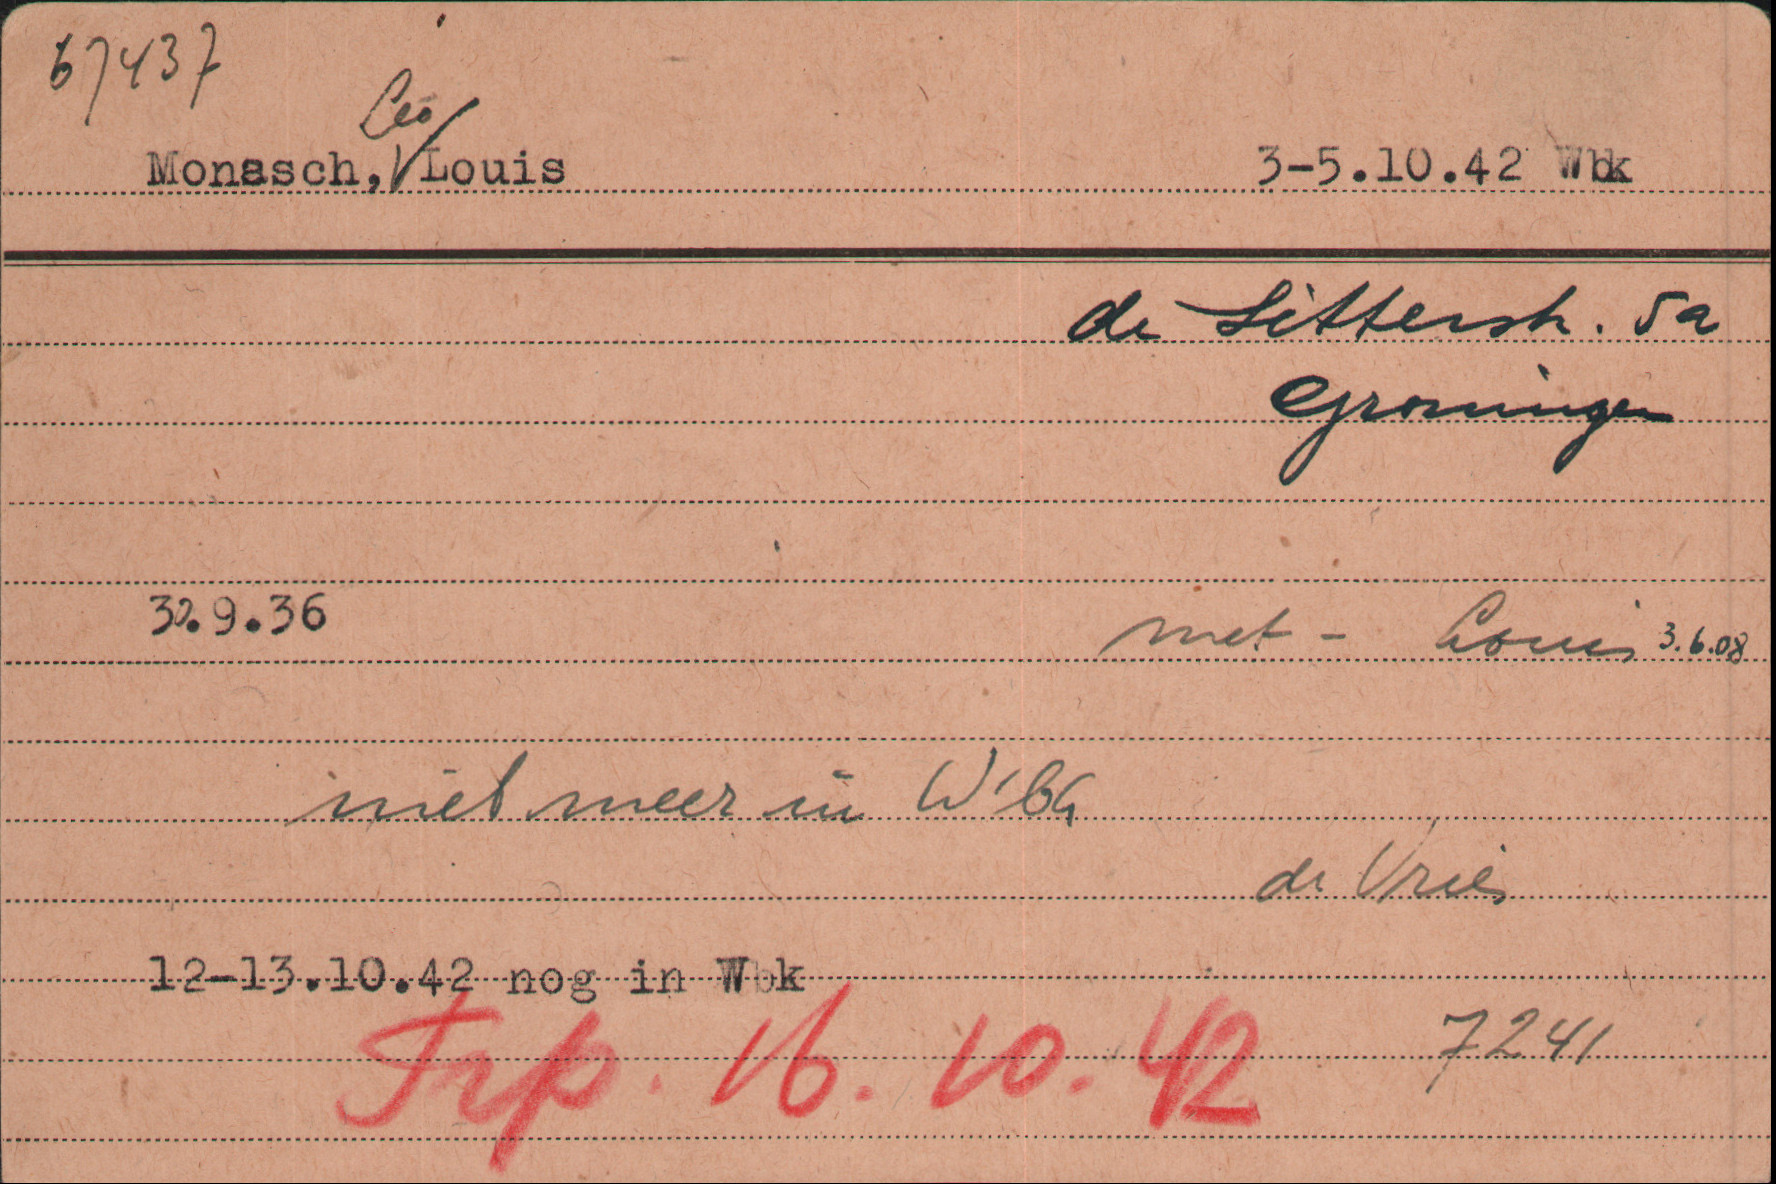 67437
Leo
Monasch, Louis 3-5.10.42 Wbk
de Sitterstr. 5a
Groningen
30.9.36 met - Louis 3.6.08
niet meer in W'bk
de Vries
12-13.10.42 nog in Wbk
Trp. 16.10.42 7241